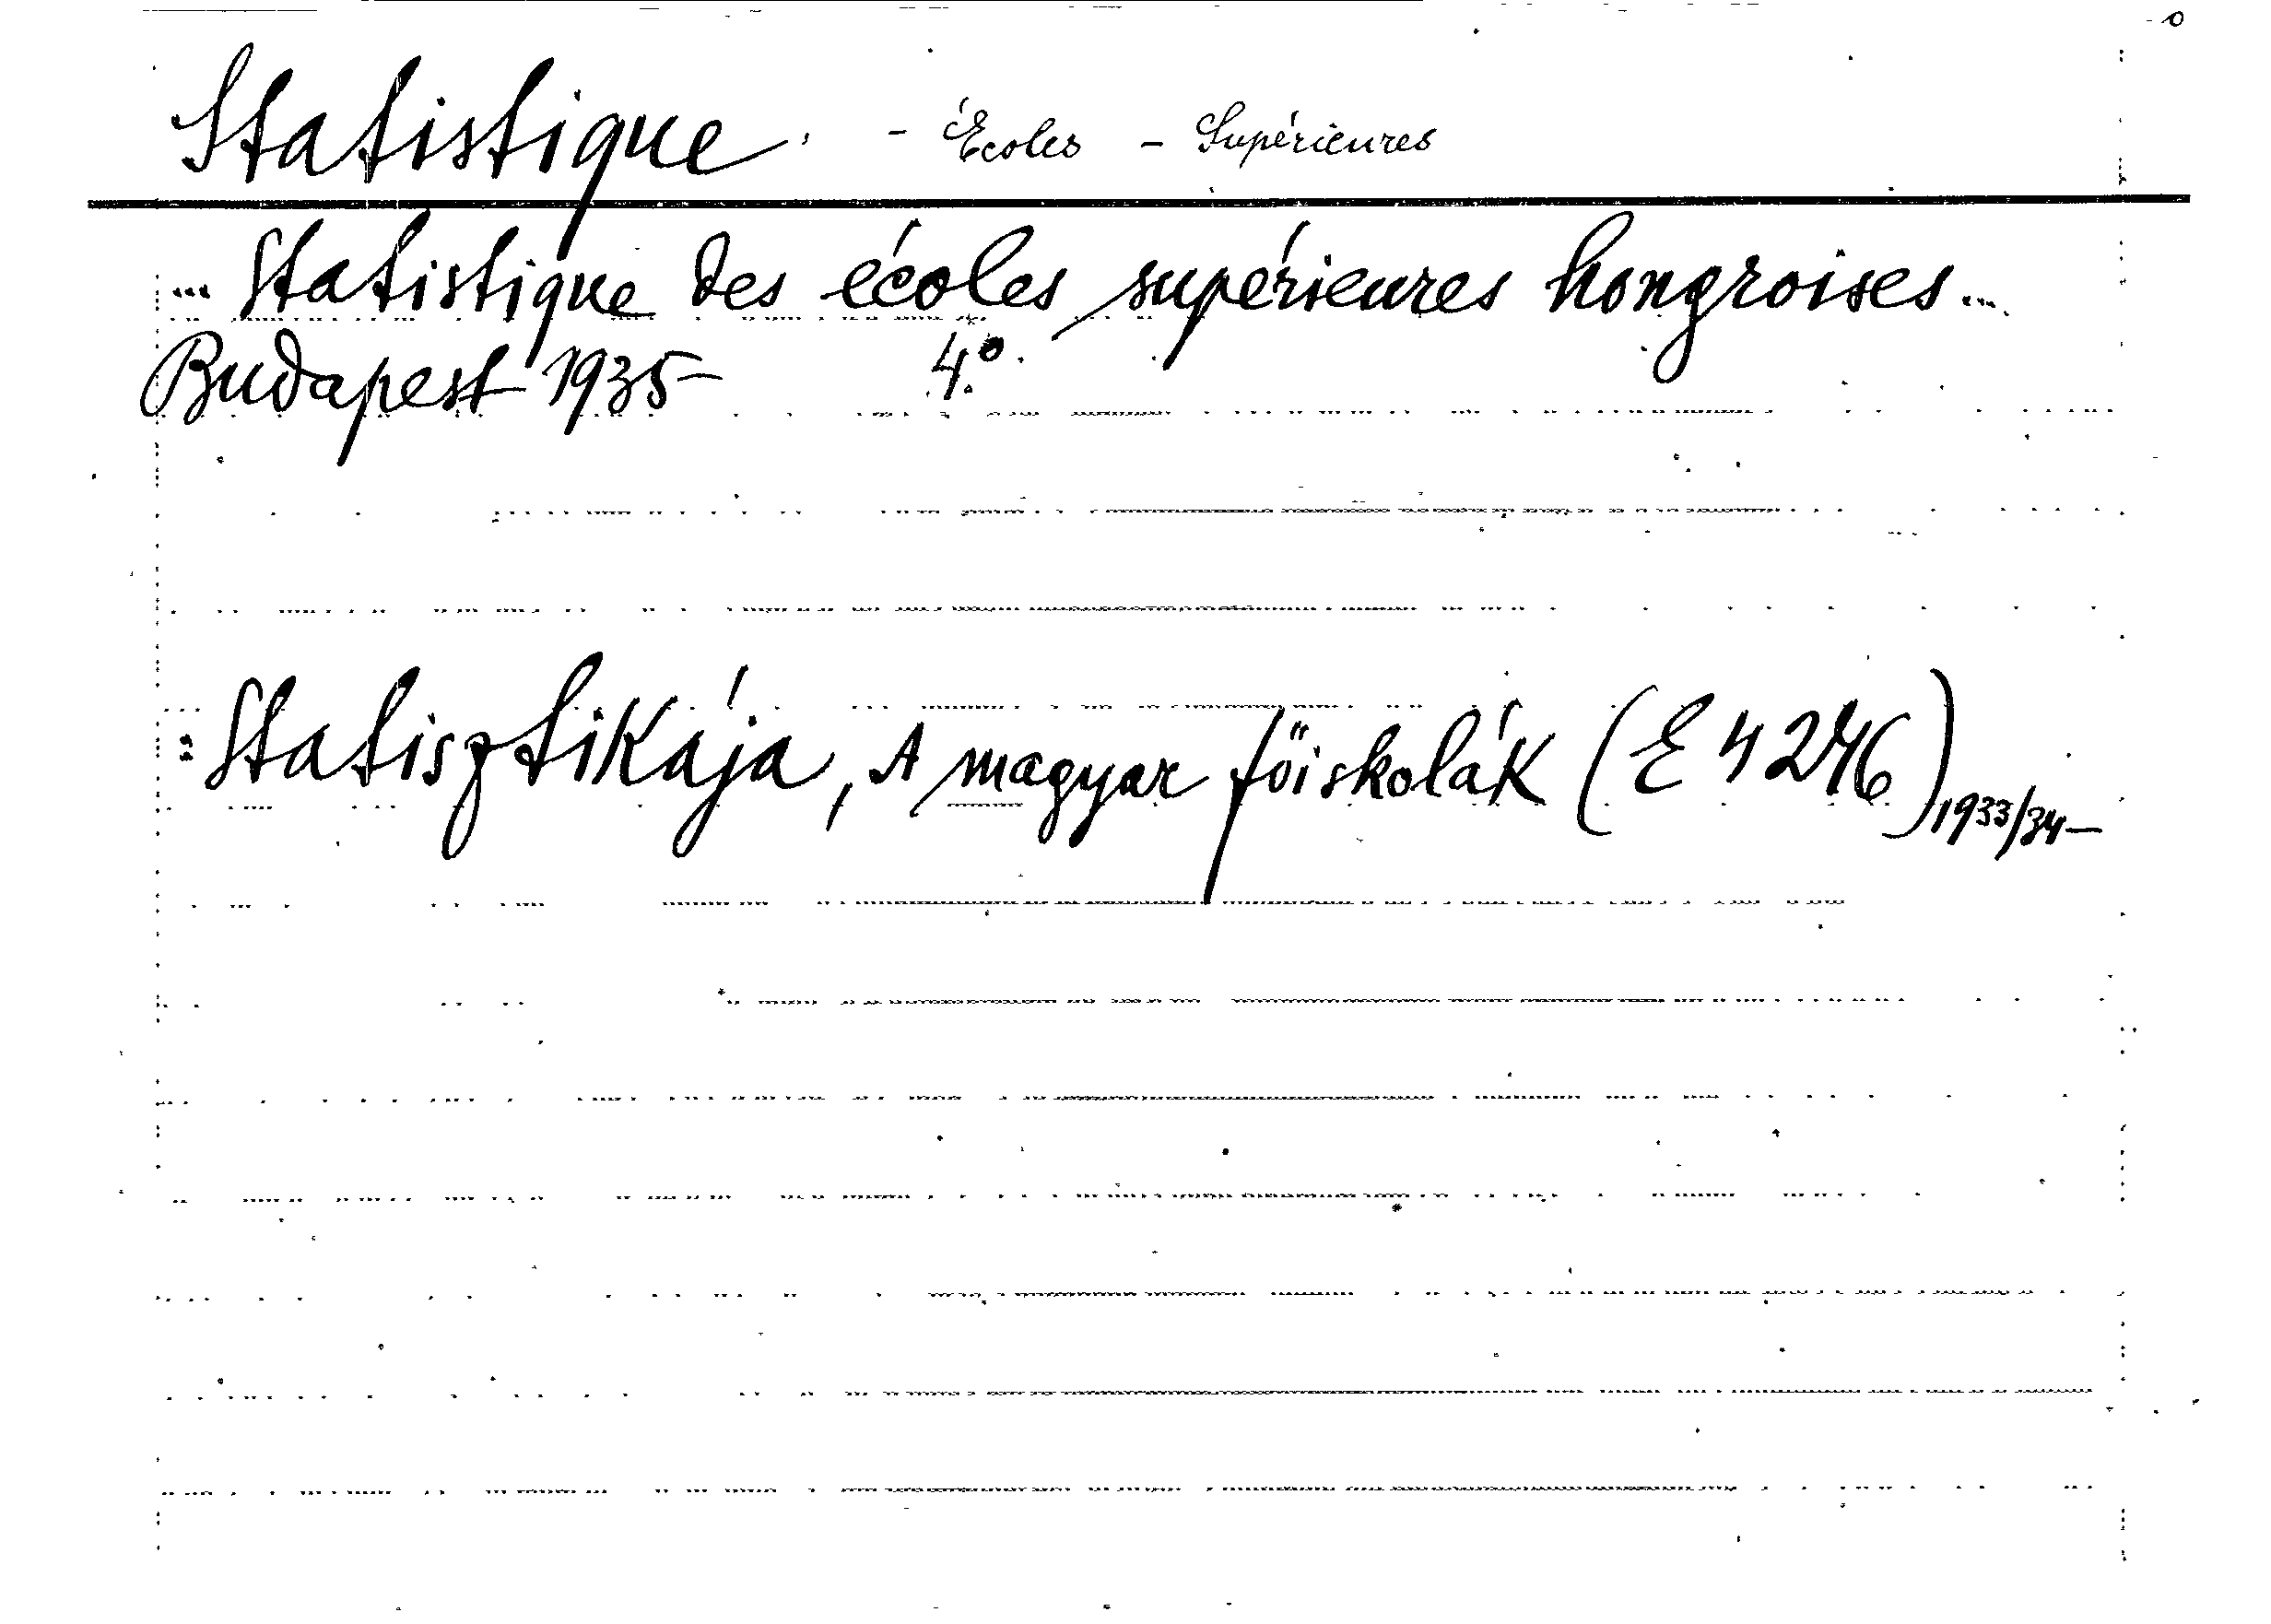 Statistique. - Écoles - Supérieures
... Statistique des écoles supérieures hongroises...
Budapest 1935- 4.°
: Statisztikája, A magyar főiskolák (E 4246) 1933/34-